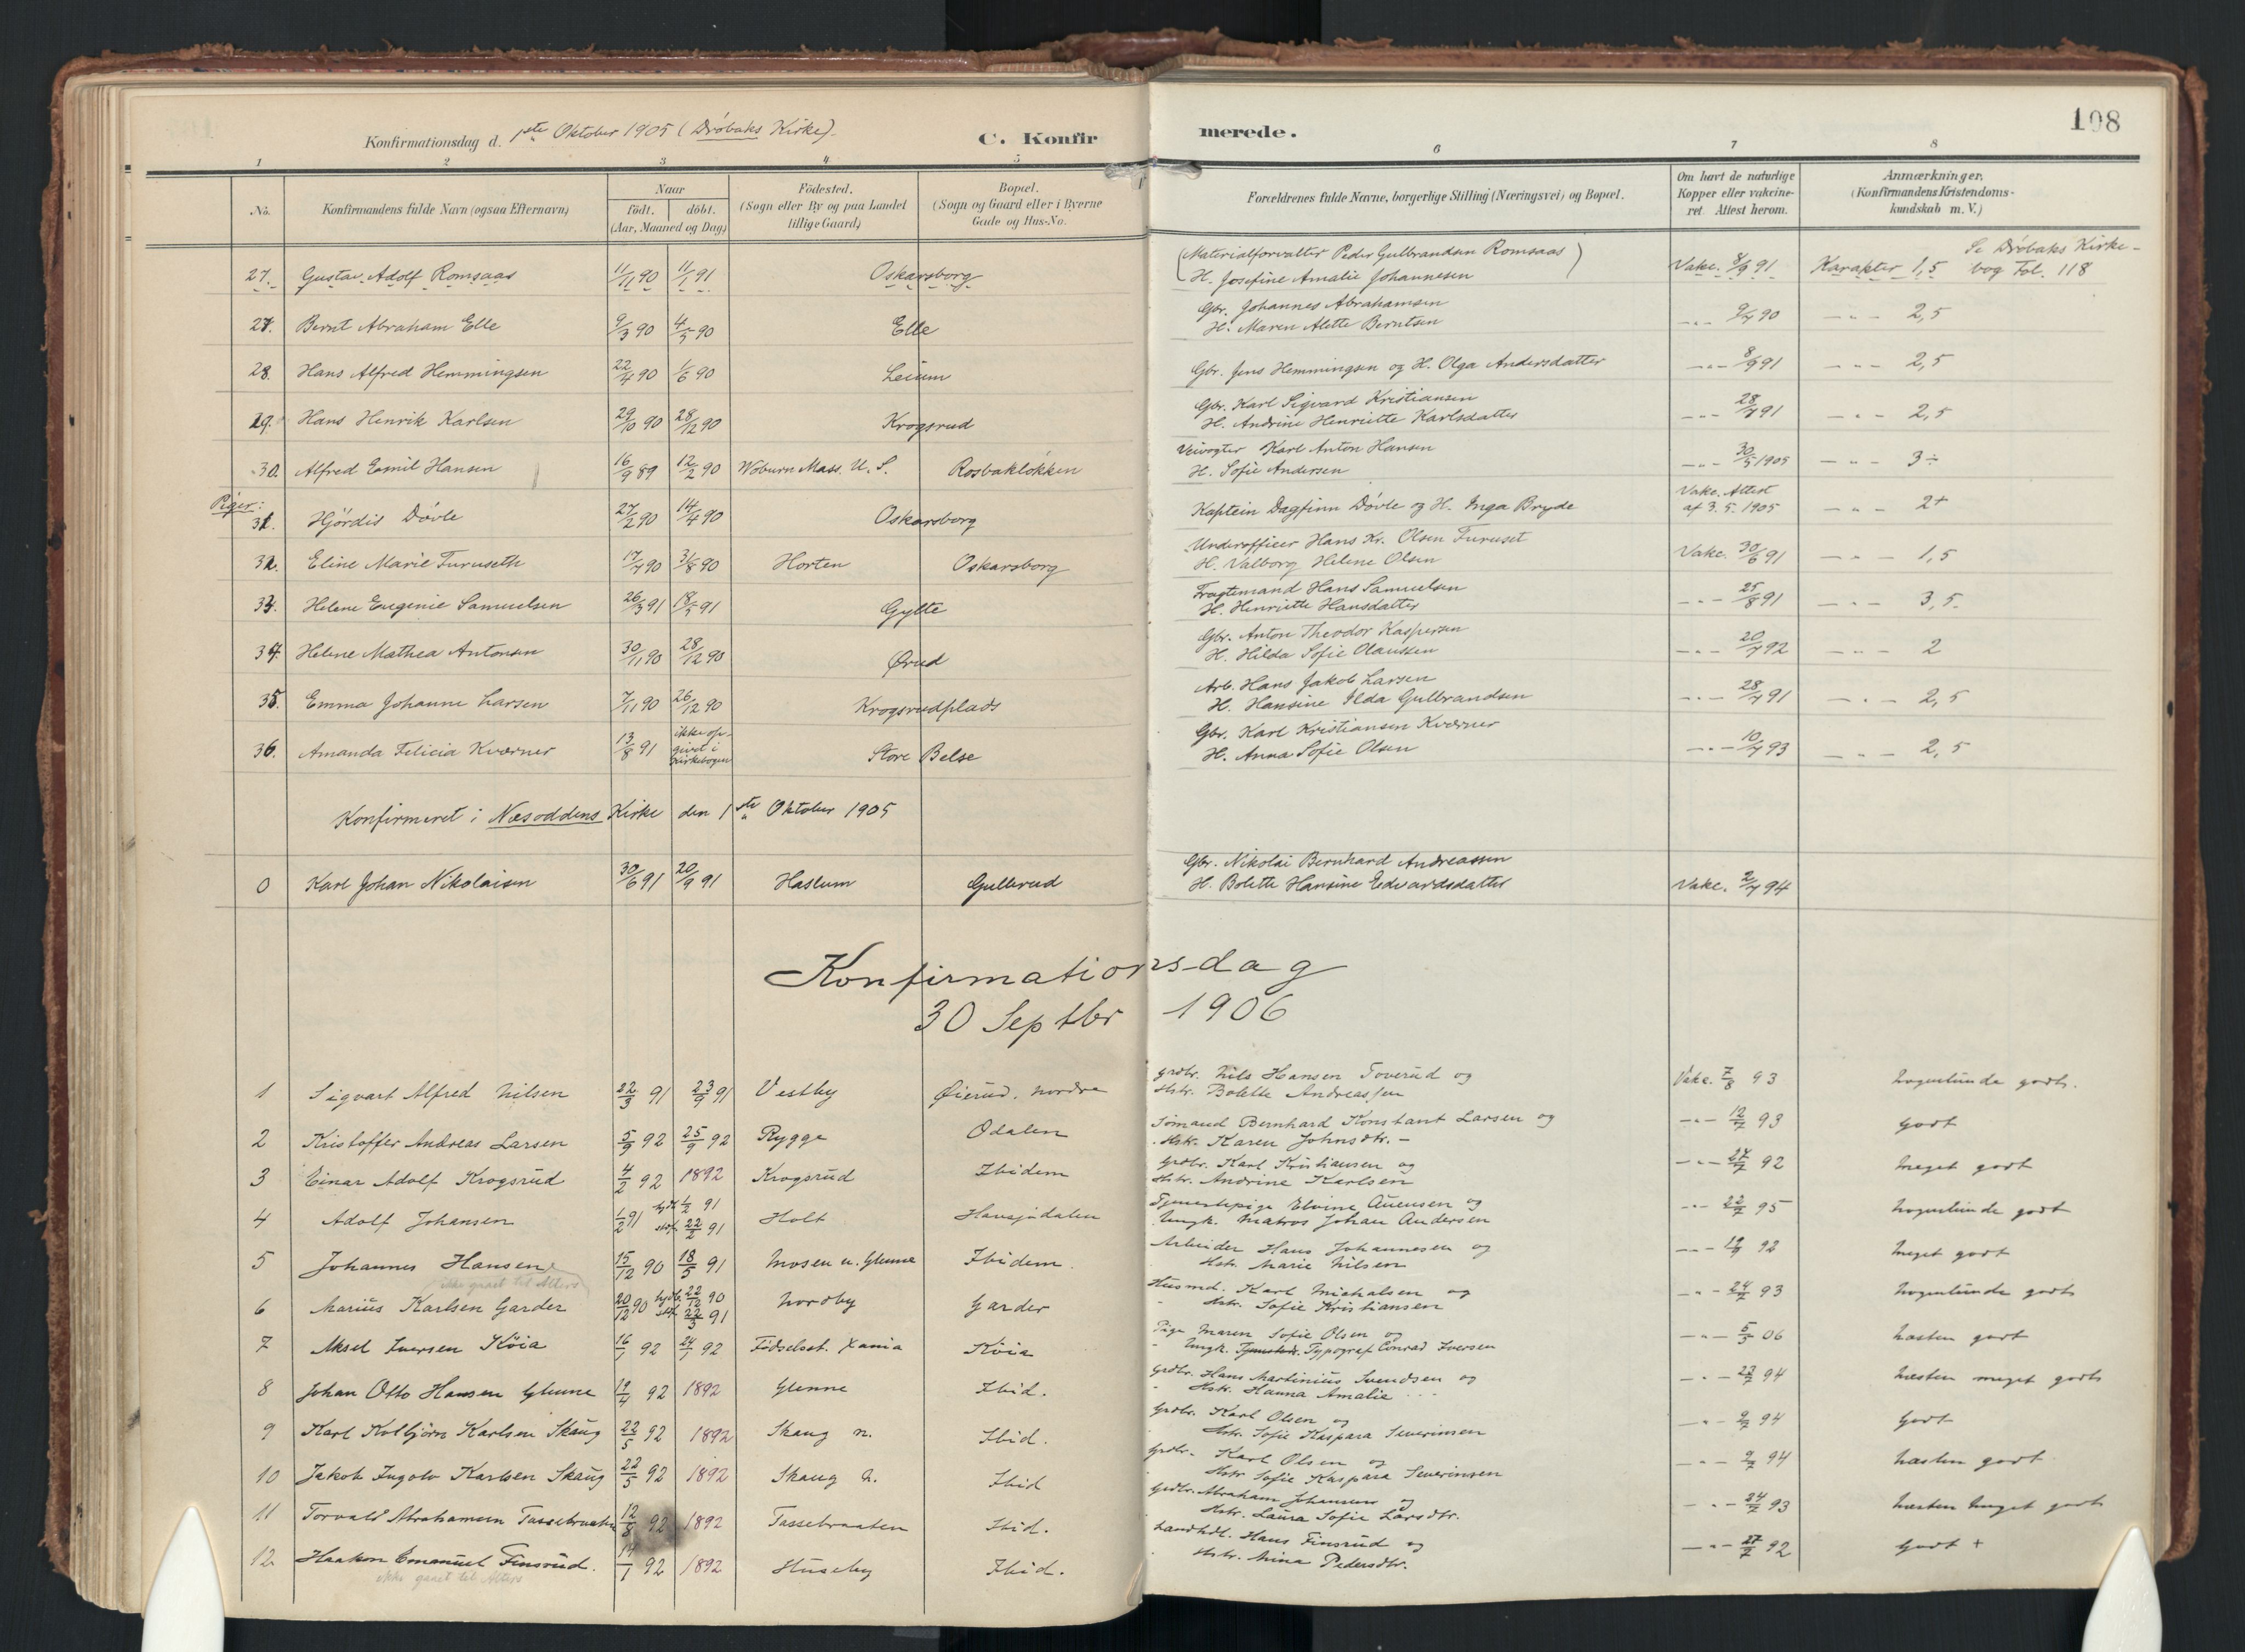 Konfirmationsdag d. 1ste Oktober 1905 (Drøbaks Kirke).
C. Konfir merede.
108
1 2 3 4 5 6 7 8
No. Konfirmandens fulde Navn (ogsaa Efternavn) Naar født. døbt. (Aar, Maaned og Dag) Fødested. (Sogn eller By og paa Landet tillige Gaard) Bopæl. (Sogn og Gaard eller i Byerne Gade og Hus-No. Forældrenes fulde Navne, borgerlige Stilling (Næringsvei) og Bopæl. Om havt de naturlige Kopper eller vakcineret. Attest herom. Anmærkninger. (Konfirmandens Kristendomskundskab m. V.)
27. Gustav Adolf Romsaas 11/11 90 11/1 91 Oskarsborg (Materialforvalter Peder Gulbrandsen Romsaas H. Josefine Amalie Johannesen) Vakc. 8/9 91 Karakter 1,5 Se Drøbaks Kirkebog Fol. 118
27. Bernt Abraham Elle 9/3 90 4/5 90 Elle Gbr. Johannes Abrahamsen H. Maren Alette Berntsen -"- 9/7 90 -"- 2,5
28. Hans Alfred Hemmingsen 22/4 90 1/6 90 Leium Gbr. Jens Hemmingsen og H. Olga Andersdatter -"- 8/9 91 -"- 2,5
29. Hans Henrik Karlsen 29/10 90 28/12 90 Krogsrud Gbr. Karl Sigvard Kristiansen H. Andrine Henriette Karlsdatter -"- 28/7 91 -"- 2,5
30. Alfred Emil Hansen 16/9 89 12/2 90 Woburn Mass. U. S. Rosbakløkken Veivogter Karl Anton Hansen H. Sofie Andersen -"- 30/5 1905 -"- 3÷
Piger:
31. Hjørdis Døvle 27/2 90 14/4 90 Oskarsborg Kaptein Dagfinn Døvle og H. Inga Bryde Vakc. Attest af 3. 5. 1905 -"- 2+
32. Eline Marie Furuseth 17/7 90 31/8 90 Horten Oskarsborg Underofficer Hans Kr. Olsen Furuset H. Valborg Helene Olsen Vakc. 30/6 91 -"- 1,5
33. Helene Eugenie Samuelsen 26/3 91 18/5 91 Gylte Fragtemand Hans Samuelsen H. Henriette Hansdatter -"- 25/8 91 -"- 3,5.
34. Helene Mathea Antonsen 30/11 90 28/12 90 Ørud Gbr. Anton Theodor Kaspersen H. Hilda Sofie Olaussen -"- 20/7 92 -"- 2
35. Emma Johanne Larsen 7/11 90 26/12 90 Krogsrudplads Arb. Hans Jakob Larsen H. Hansine Ilda Gulbrandsen -"- 28/7 91 -"- 2,5
36. Amanda Felicia Kværner 13/8 91 ikke opgivet i Kirkebogen Store Belse Gbr. Karl Kristiansen Kværner H. Anna Sofie Olsen -"- 10/7 93 -"- 2,5
Konfirmeret i Næsoddens Kirke den 1ste Oktober 1905
0 Karl Johan Nikolaisen 30/6 91 20/9 91 Haslum Gullerud Gbr. Nikolai Bernhard Andreassen H. Bolette Hansine Edvardsdatter Vakc. 2/7 94
Konfirmationsdag
30 Septbr 1906
1 Sigvart Alfred Nilsen 22/3 91 23/9 91 Vestby Øierud. nordre grdbr. Nils Hansen Toverud og Hstr. Bolette Andreassen Vakc. 7/8 93 nogenlunde godt.
2 Kristoffer Andreas Larsen 5/9 92 25/9 92 Rygge Odalen Sømand Bernhard Konstant Larsen og Hstr. Karen Johnsdtr. -"- 12/7 93 godt
3 Einar Adolf Krogsrud 4/2 92 1892 Krogsrud Ibidem grdbr. Karl Kristiansen og Hstr. Andrine Karlsen -"- 27/7 92 meget godt
4 Adolf Johansen 1/2 91 hjdt 1/2 91 stdf. 22/2 91 Holt Tjenestepige Elvine og Ungk. Matros Johan Andersen -"- 22/7 95 nogenlunde godt
5 Johannes Hansen 15/12 90 18/5 91 Mosen u. Glenne Ibidem. Arbeider Hans Johannesen og Hstr. Marie Nilsen -"- 92 meget godt
ikke gaaet til Alters
6 Marius Karlsen Garder 20/12 90 hjdb. 22/12 90 stdf. 22/3 91 Nordby Garder Husmd. Karl Michalsen og Hstr. Sofie Kristiansen -"- 24/7 93 nogenlunde godt
7 Aksel Iversen Köia 16/1 92 24/1 92 Fødselsst. Xania Köia Pige Maren Sofie Olsen og Ungk. Typograf Conrad Iversen -"- 5/5 06 næsten godt
8 Johan Otto Hansen Glenne 19/4 92 1892 Glenne Ibid. grdbr. Hans Martinius Svendsen og Hstr. Hanna Amalie -"- 23/7 94 næsten meget godt
9 Karl Kolbjørn Karlsen Skaug 22/5 92 1892 Skaug n. Ibid. grdbr. Karl Olsen og Hstr. Sofie Kaspara Severinsen -"- 9/7 94 godt
10 Jakob Ingolv Karlsen Skaug 22/5 92 1892 Skaug n. Ibid grdbr. Karl Olsen og Hstr Sofie Kaspara Severinsen -"- 9/7 94 næsten godt
11 Torvald Abrahamsen Tassebraaten 12/8 92 1892 Tassebraaten Ibid. grdbr. Abraham Johansen og Hstr. Laura Sofie Larsdtr. -"- 24/7 93 næsten meget godt
12 Haakon Emanuel Finsrud. 14/1 92 1892 Huseby Ibid. Landhdl. Hans Finsrud og Hstr. Mina Pedersdtr. -"- 27/7 92 godt +
ikke gaaet til Alters